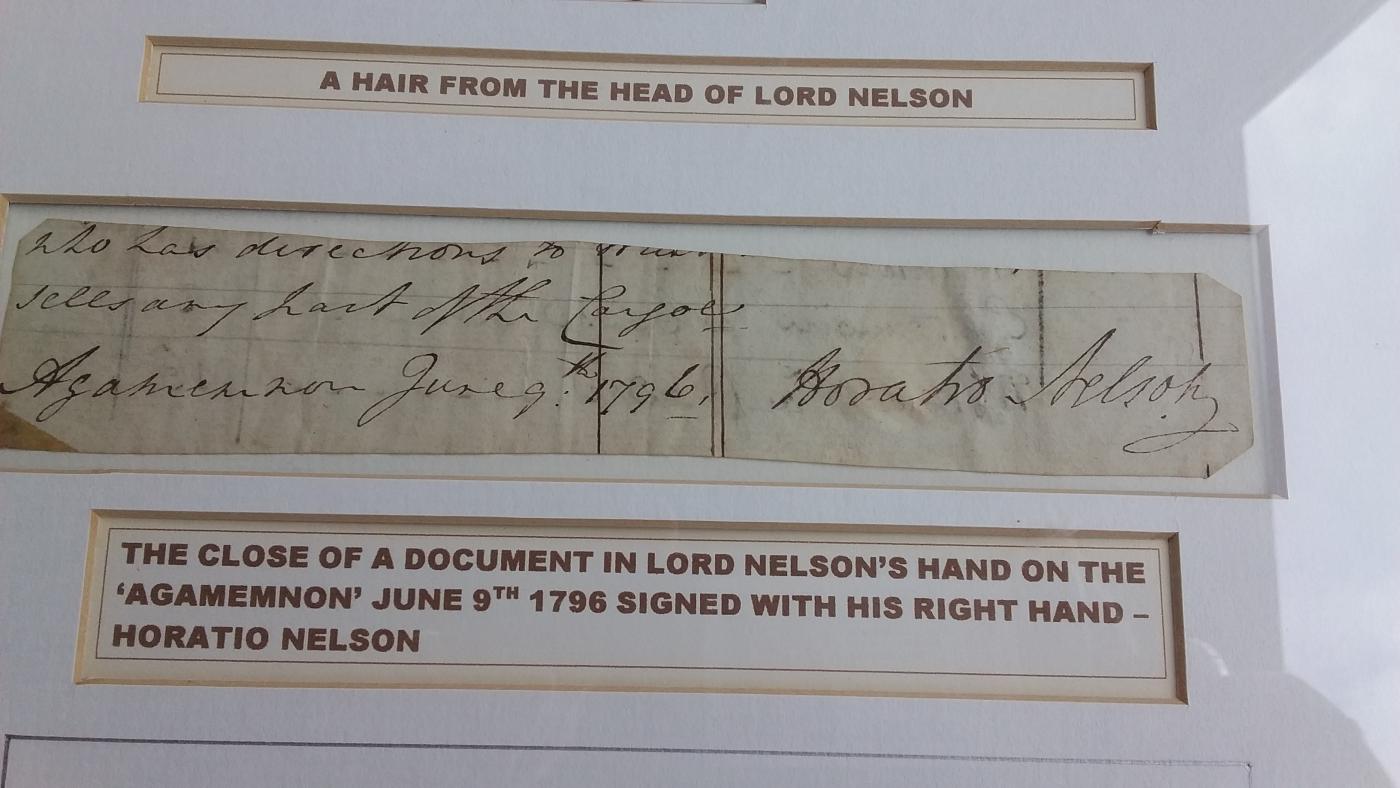 A HAIR FROM THE HEAD OF LORD NELSON
who has directions to
sells any part of the Cargoes
Agamemnon June 9th: 1796, Horatio Nelson
THE CLOSE OF A DOCUMENT IN LORD NELSON'S HAND ON THE
‘AGAMEMNON’ JUNE 9TH 1796 SIGNED WITH HIS RIGHT HAND –
HORATIO NELSON